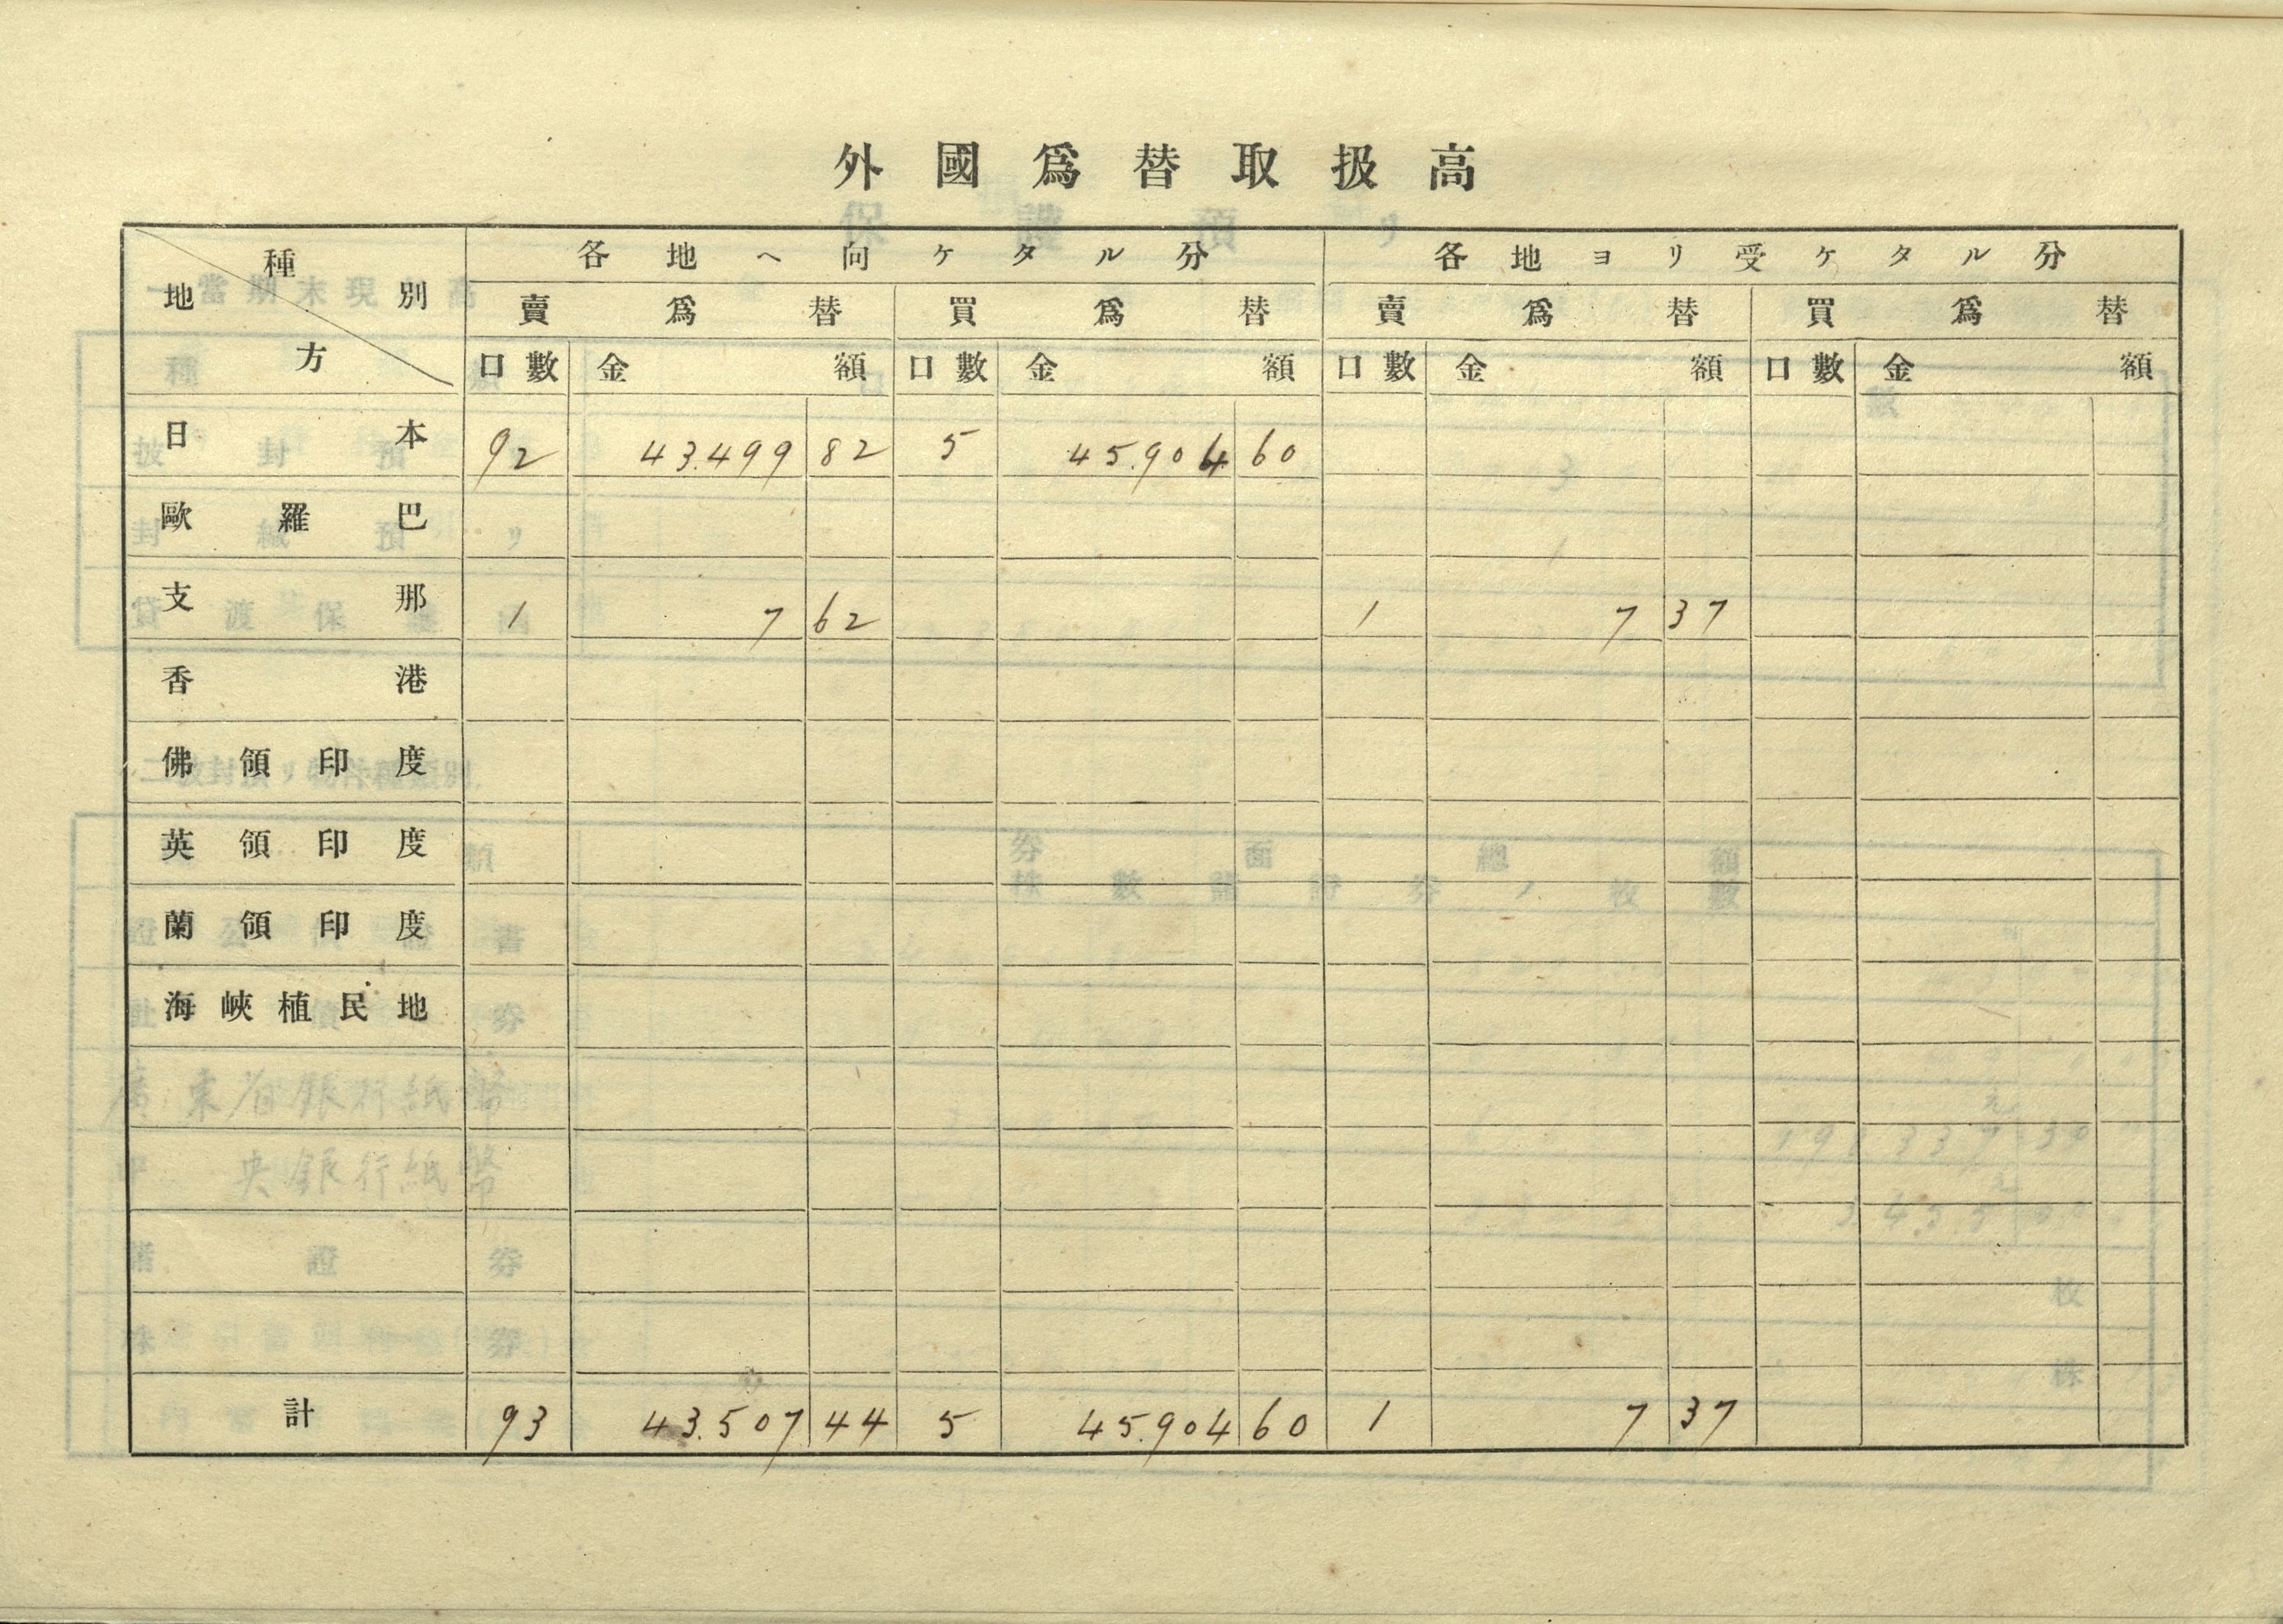 外國爲替取扱高
種別 地方 各地ヘ向ケタル分 各地ヨリ受ケタル分
賣爲替 買爲替 賣爲替 買爲替
口數 金額 口數 金額 口數 金額 口數 金額
日本 92 43.499 82 5 45.904 60
歐羅巴
支那 1 7 62 1 7 37
香港
佛領印度
英領印度
蘭領印度
海峽植民地
計 93 43.507 44 5 45.904 60 1 7 37